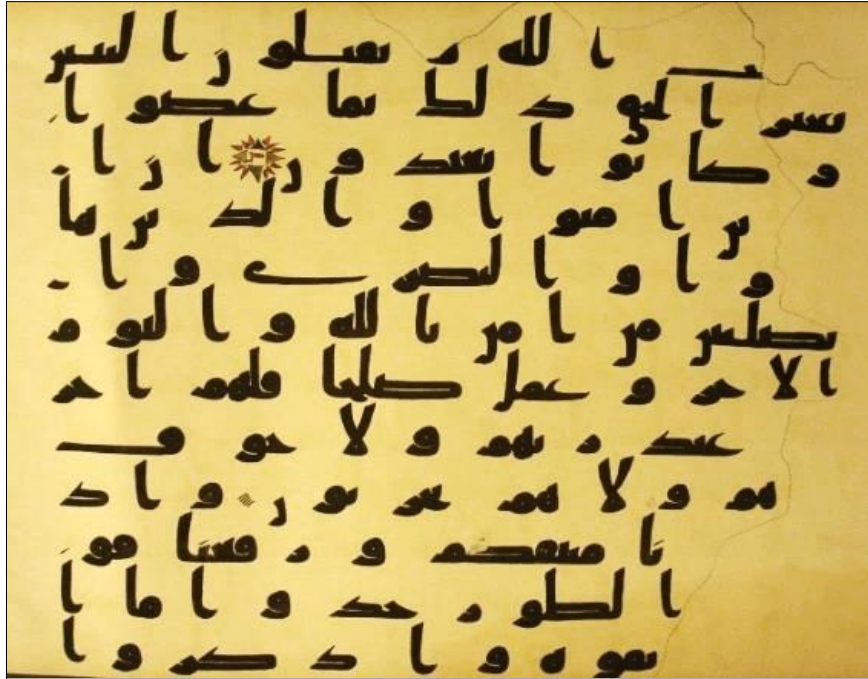 ت الله و يقتلون النبين
بغير الحق ذلك بما عصوا
و كانوا يعتدون ان الذ
ين امنوا و الذين ها
دوا و النصرى و ا
لصبين من امن بالله و اليوم
الاخر و عمل صلحا فلهم اجر
هم عند ربهم و لا خوف
عليهم و لا هم يحزنون و اذ
اخذنا ميثقكم و رفعنا فو
قكم الطور خذوا ما ا
تينكم بقوه و اذكروا